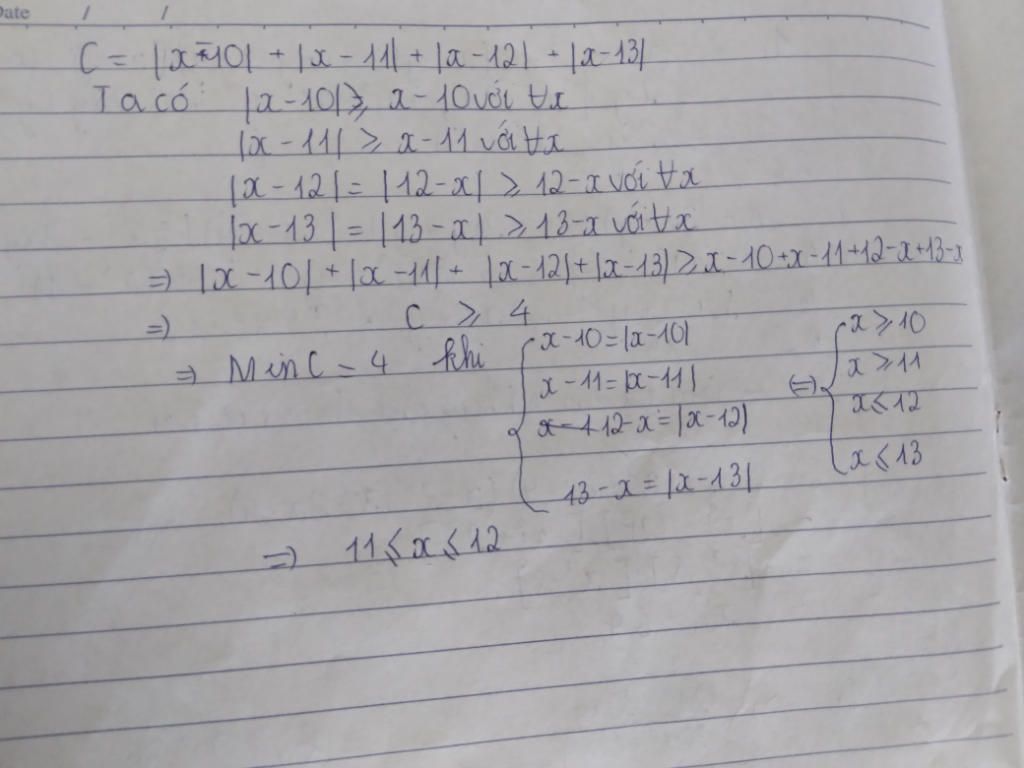 Date / /
C = |x-10| + |x-11| + |x-12| + |x-13|
Ta có |x-10| ≥ x-10 với ∀x
|x-11| ≥ x-11 với ∀x
|x-12| = |12-x| ≥ 12-x với ∀x
|x-13| = |13-x| ≥ 13-x với ∀x
=> |x-10| + |x-11| + |x-12| + |x-13| ≥ x-10+x-11+12-x+13-x
=> C ≥ 4
=> Min C = 4 khi { x-10 = |x-10| <=> { x ≥ 10
x-11 = |x-11| x ≥ 11
12-x = |x-12| x ≤ 12
13-x = |x-13| x ≤ 13
=> 11 ≤ x ≤ 12